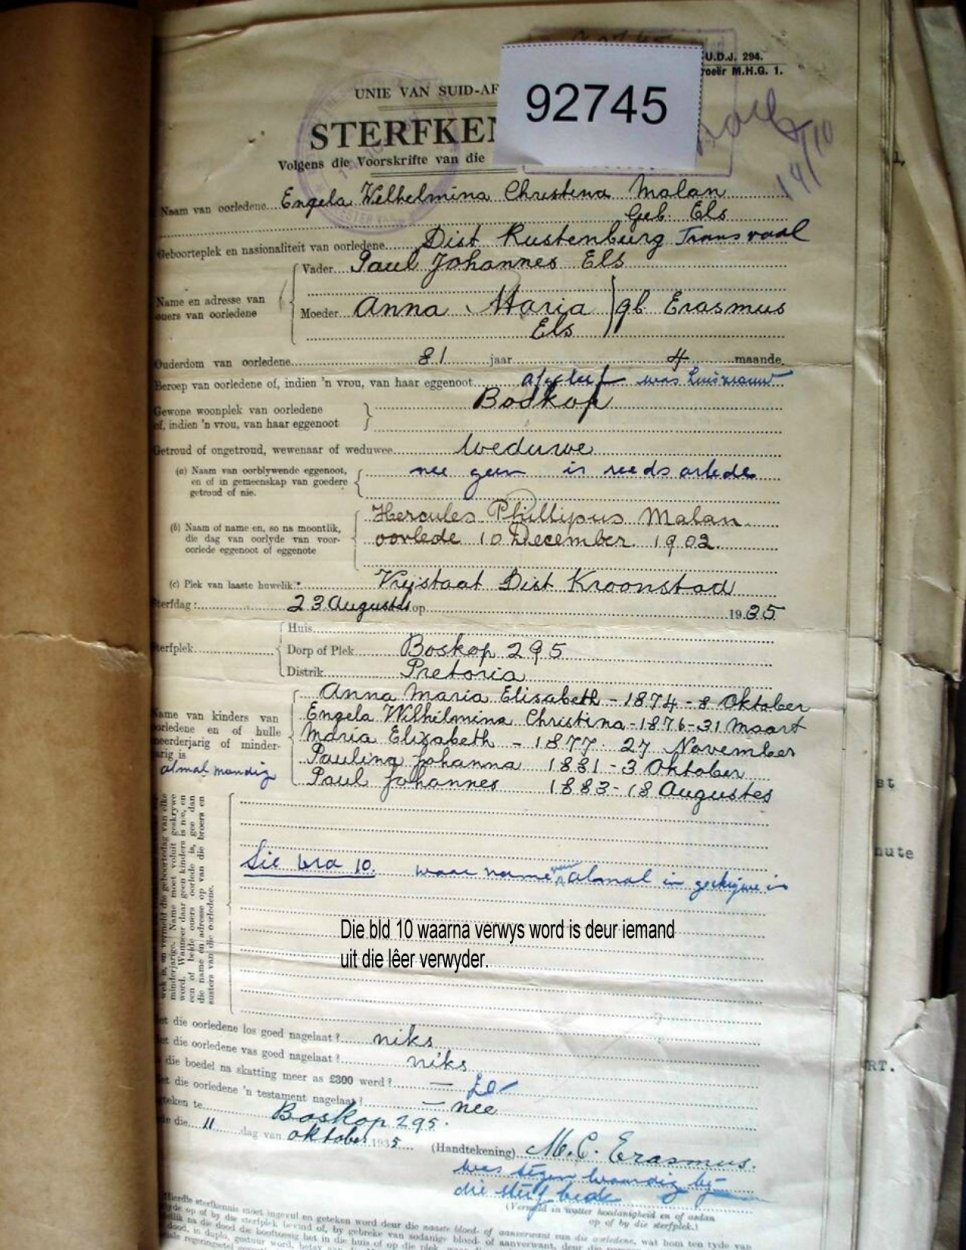 U.D.J. 294.
M.H.G. 1.
UNIE VAN SUID-AF
92745
STERFKEN
Volgens die Voorskrifte van die
14/10
Naam van oorledene Engela Wilhelmina Christina Malan
Geb. Els
Geboorteplek en nasionaliteit van oorledene Dist Rustenburg Transvaal
Name en adresse van ouers van oorledene
Vader Paul Johannes Els
Moeder Anna Maria Els } gb Erasmus
Ouderdom van oorledene 81 jaar 4 maande
Beroep van oorledene of, indien 'n vrou, van haar eggenoot was huisvrouw
Gewone woonplek van oorledene of, indien 'n vrou, van haar eggenoot } Boskop
Getroud of ongetroud, wewenaar of weduwee Weduwe
(a) Naam van oorblywende eggenoot, en of in gemeenskap van goedere getroud of nie. nee geen is reeds orlede
(b) Naam of name en, so na moontlik, die dag van oorlyde van vooroorlede eggenoot of eggenote
Hercules Phillipus Malan
oorlede 10 December 1902
(c) Plek van laaste huwelik Vrijstaat Dist Kroonstad
Sterfdag: 23 Augustus op 1935
Sterfplek
Huis
Dorp of Plek Boskop 295
Distrik Pretoria
Name van kinders van oorledene en of hulle meerderjarig of minderjarig is
almal mondig
Anna Maria Elisabeth - 1874 - 8 Oktober
Engela Wilhilmina Christina - 1876 - 31 Maart
Maria Elizabeth - 1877 27 November
Paulina Johanna 1881 - 3 Oktober
Paul Johannes 1883 - 18 Augustes
Sie bra 10. waar name almal in
Die bld 10 waarna verwys word is deur iemand
uit die lêer verwyder.
die oorledene los goed nagelaat? niks
die oorledene vas goed nagelaat? niks
die boedel na skatting meer as £300 werd? —
die oorledene 'n testament nagelaat? — nee
Boskop 295.
die 11 dag van oktober 1935
(Handtekening) M. C. Erasmus.
was tegenwoordig bij
die sterf bede
op of by die sterfplek.)
Hierdie sterfkennis moet ingevul en geteken word deur die naaste bloed- of aanverwant van die oorledene, wat